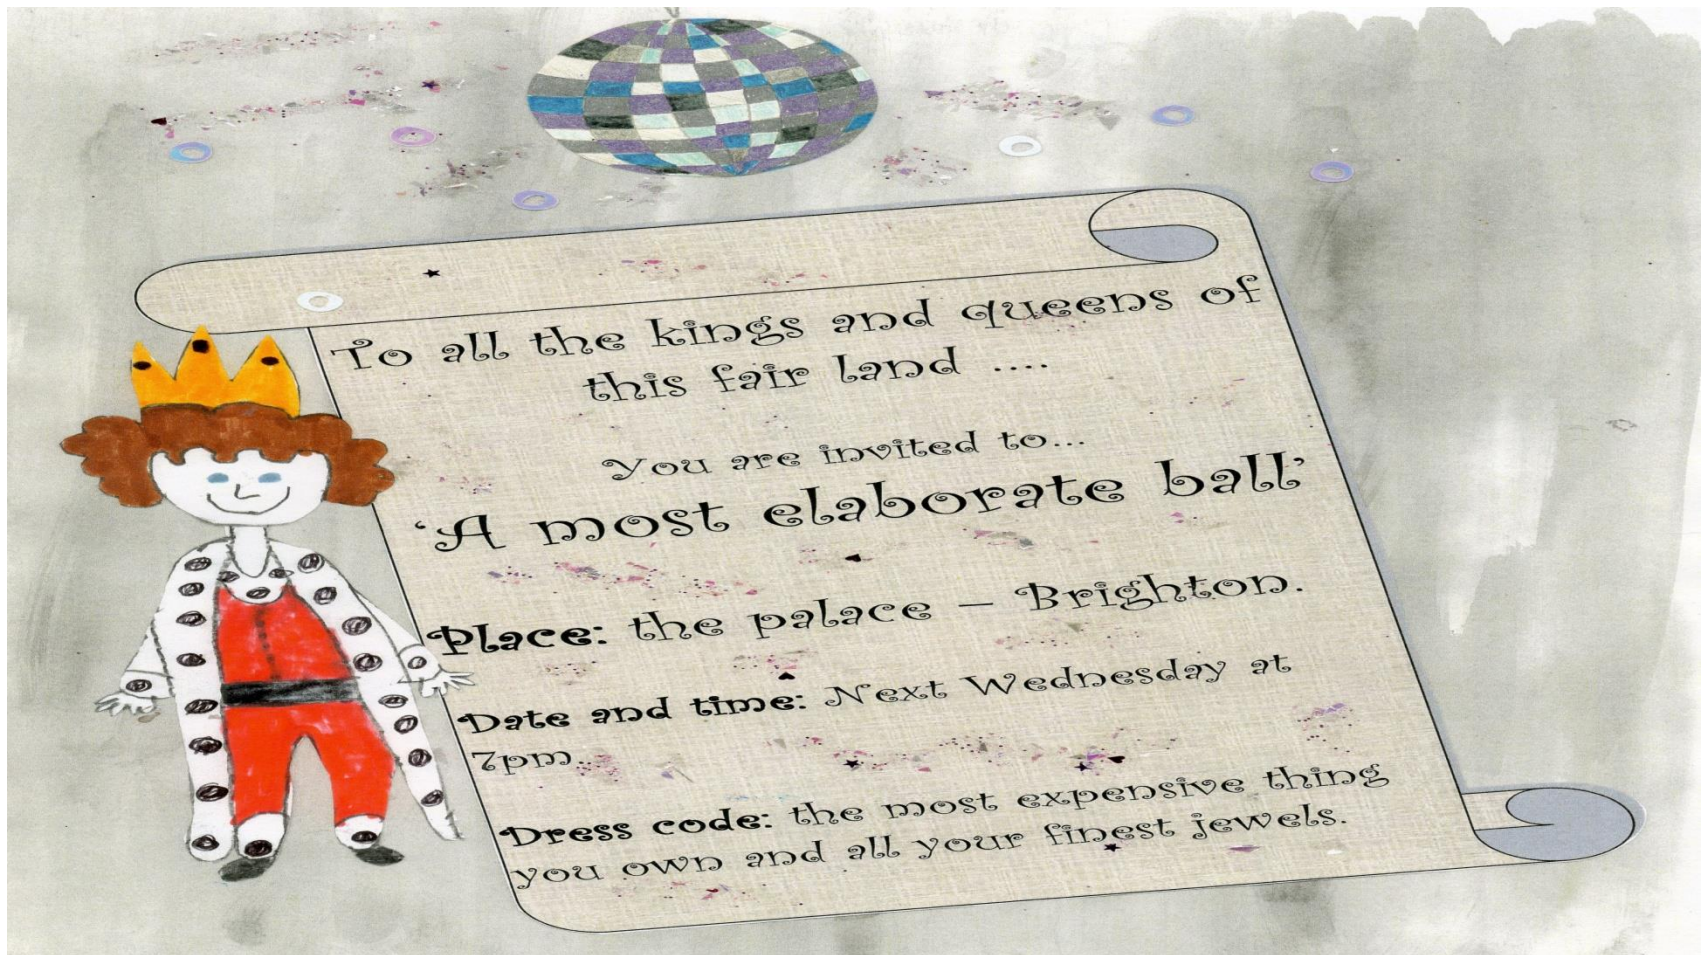 To all the kings and queens of
this fair land ....
You are invited to...
‘A most elaborate ball’
Place: the palace – Brighton.
Date and time: Next Wednesday at
7pm.
Dress code: the most expensive thing
you own and all your finest jewels.